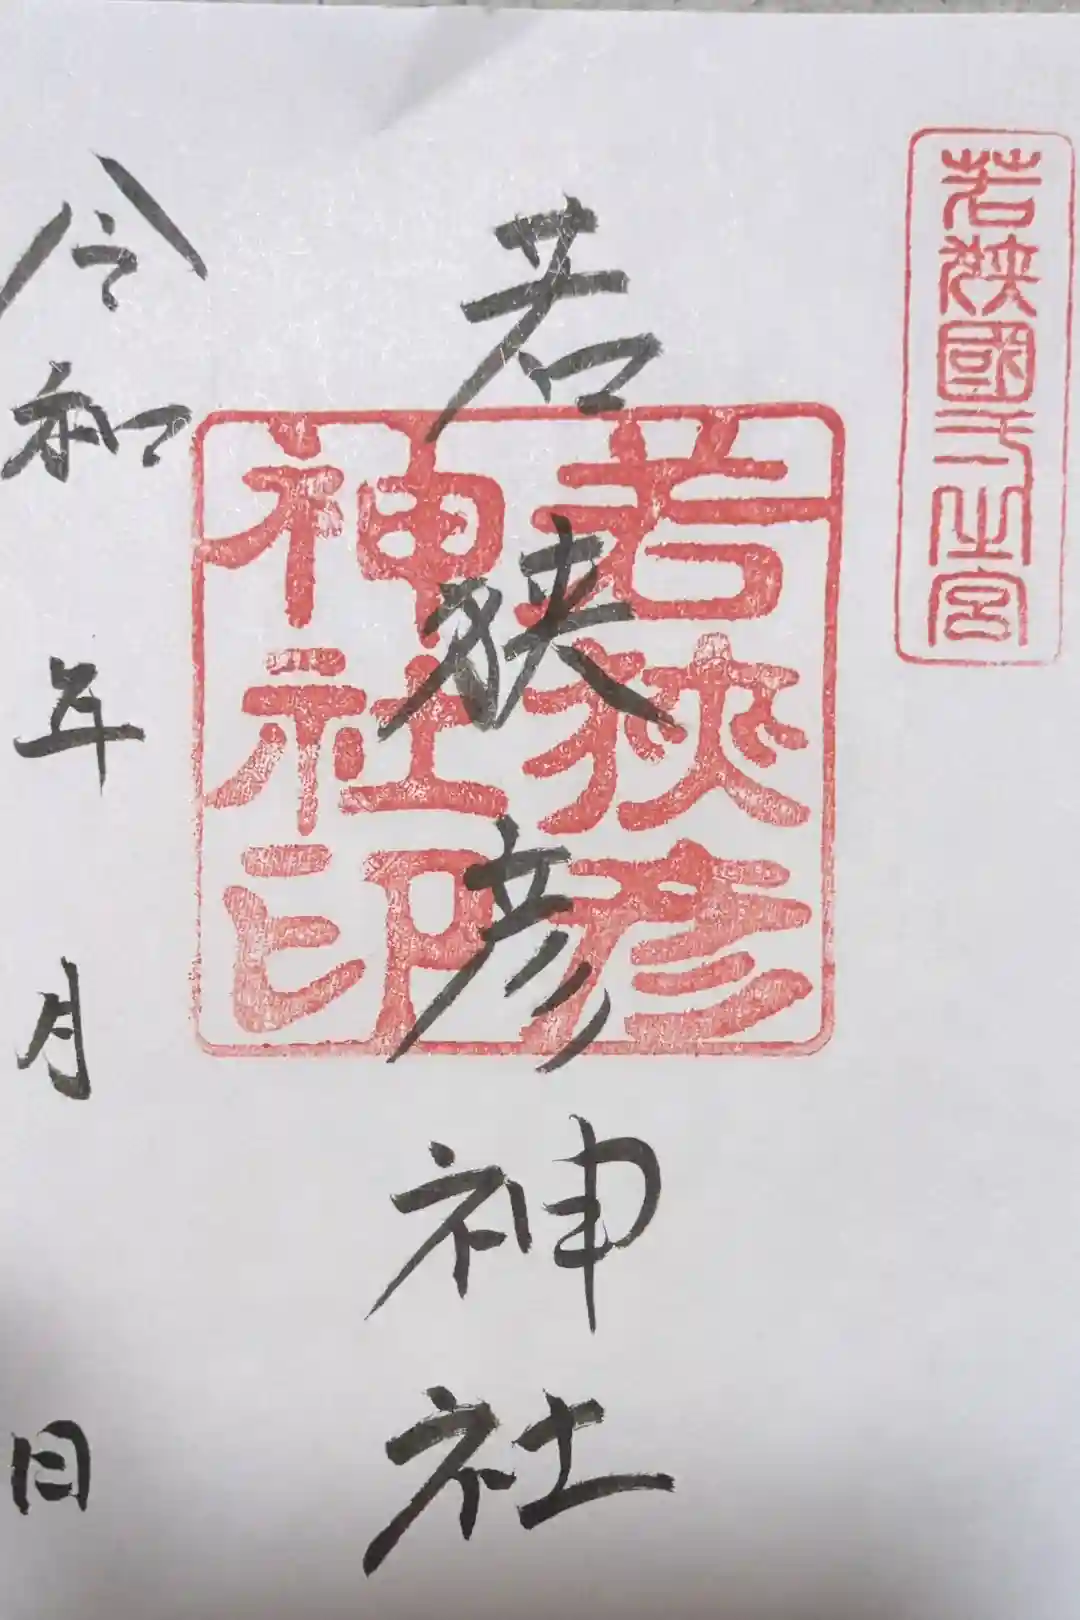 若狭國一之宮
若狭彦神社
若狭彦
神社印
令和 年 月 日